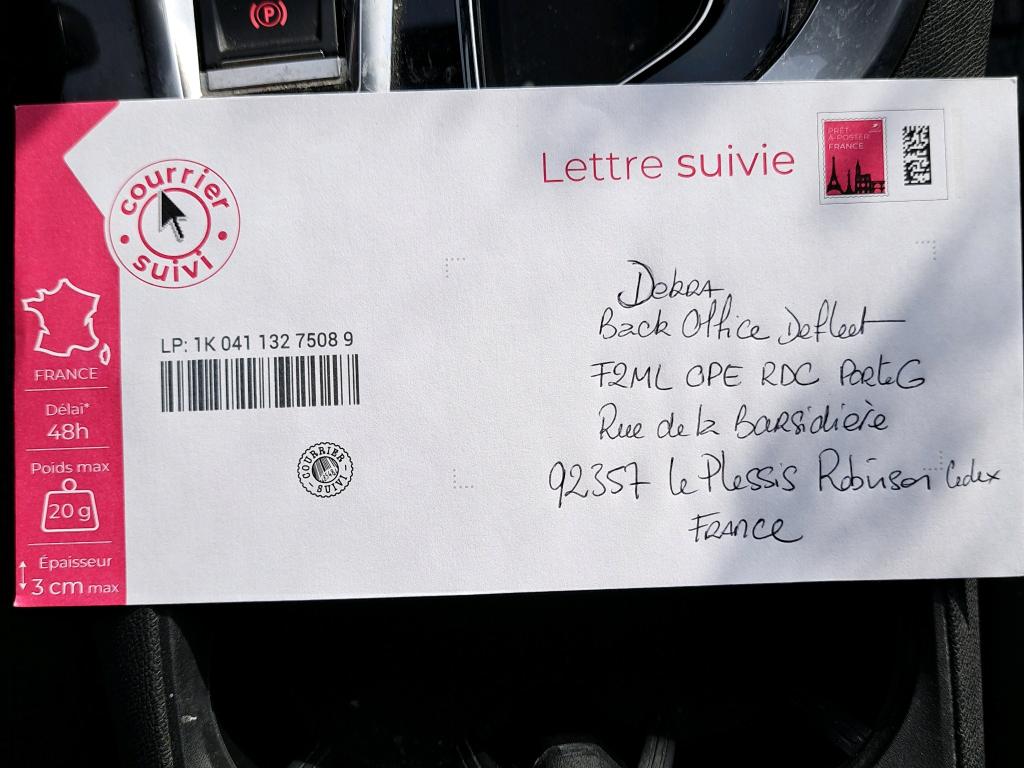 P
Lettre suivie
PRÊT-
À-POSTER
FRANCE
courrier
suivi
LP: 1K 041 132 7508 9
COURRIER
SUIVI
FRANCE
Délai*
48h
Poids max
20 g
Épaisseur
3 cm max
Debra
Back Office Defleet
F2ML OPE RDC Porte G
Rue de la Barsidière
92357 Le Plessis Robinson Cedex
France